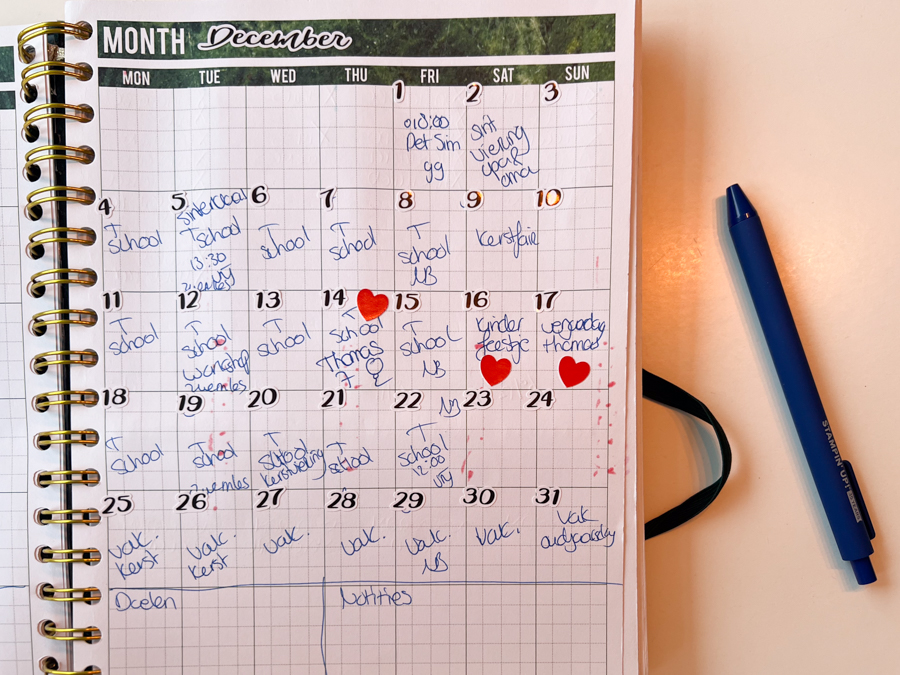 MONTH December
MON TUE WED THU FRI SAT SUN
1 2 3
Pet Sim
gg
Sint
viering
opa &
oma
4 5 6 7 8 9 10
T
school
T school
13:30
school
T
school
T
school
NB
Kerstfair
11 12 13 14 15 16 17
T
school
T
school
Workshop
zwemles
T
school
T
school
Thomas
7
T
school
NB
Kinder
feestje
verjaardag
thomas
18 19 20 21 22 NB 23 24
T
school
T
school
zwemles
T
school
Kerstviering
T
school
T
school
12:00
25 26 27 28 29 30 31
vak.
Kerst
vak.
Kerst
vak.
vak.
vak.
NB
vak.
vak
Doelen
Notities
STAMPIN' UP!